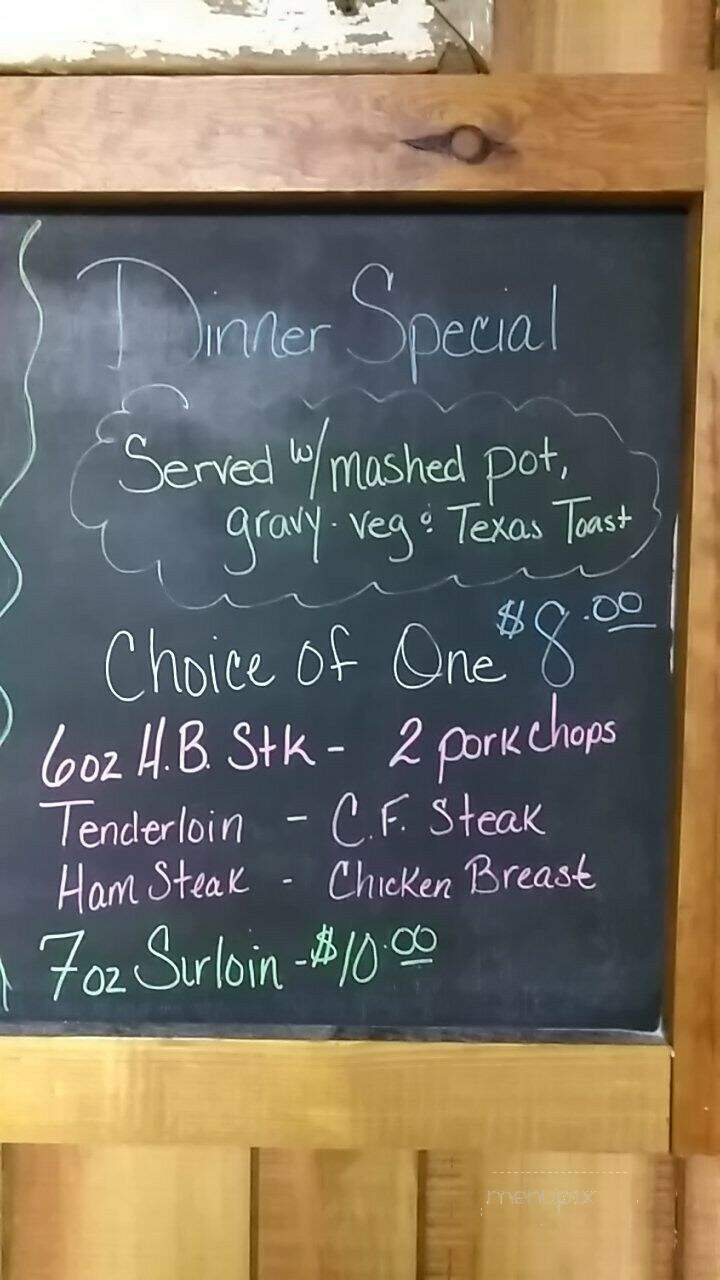 Dinner Special
Served w/mashed pot,
gravy - veg & Texas Toast
Choice of One $8.00
6oz H.B. Stk - 2 pork chops
Tenderloin - C.F. Steak
Ham Steak - Chicken Breast
7oz Sirloin - $10.00
menupix